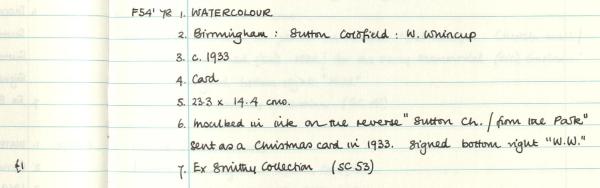 F54' YR 1. WATERCOLOUR
2. Birmingham : Sutton Coldfield : W. Whincup
3. c. 1933
4. Card
5. 23.3 x 14.4 cms.
6. Inscribed in ink on the reverse "Sutton Ch. / from the Park"
Sent as a Christmas card in 1933. Signed bottom right "W.W."
£1 7. Ex Smithy Collection (SC 53)